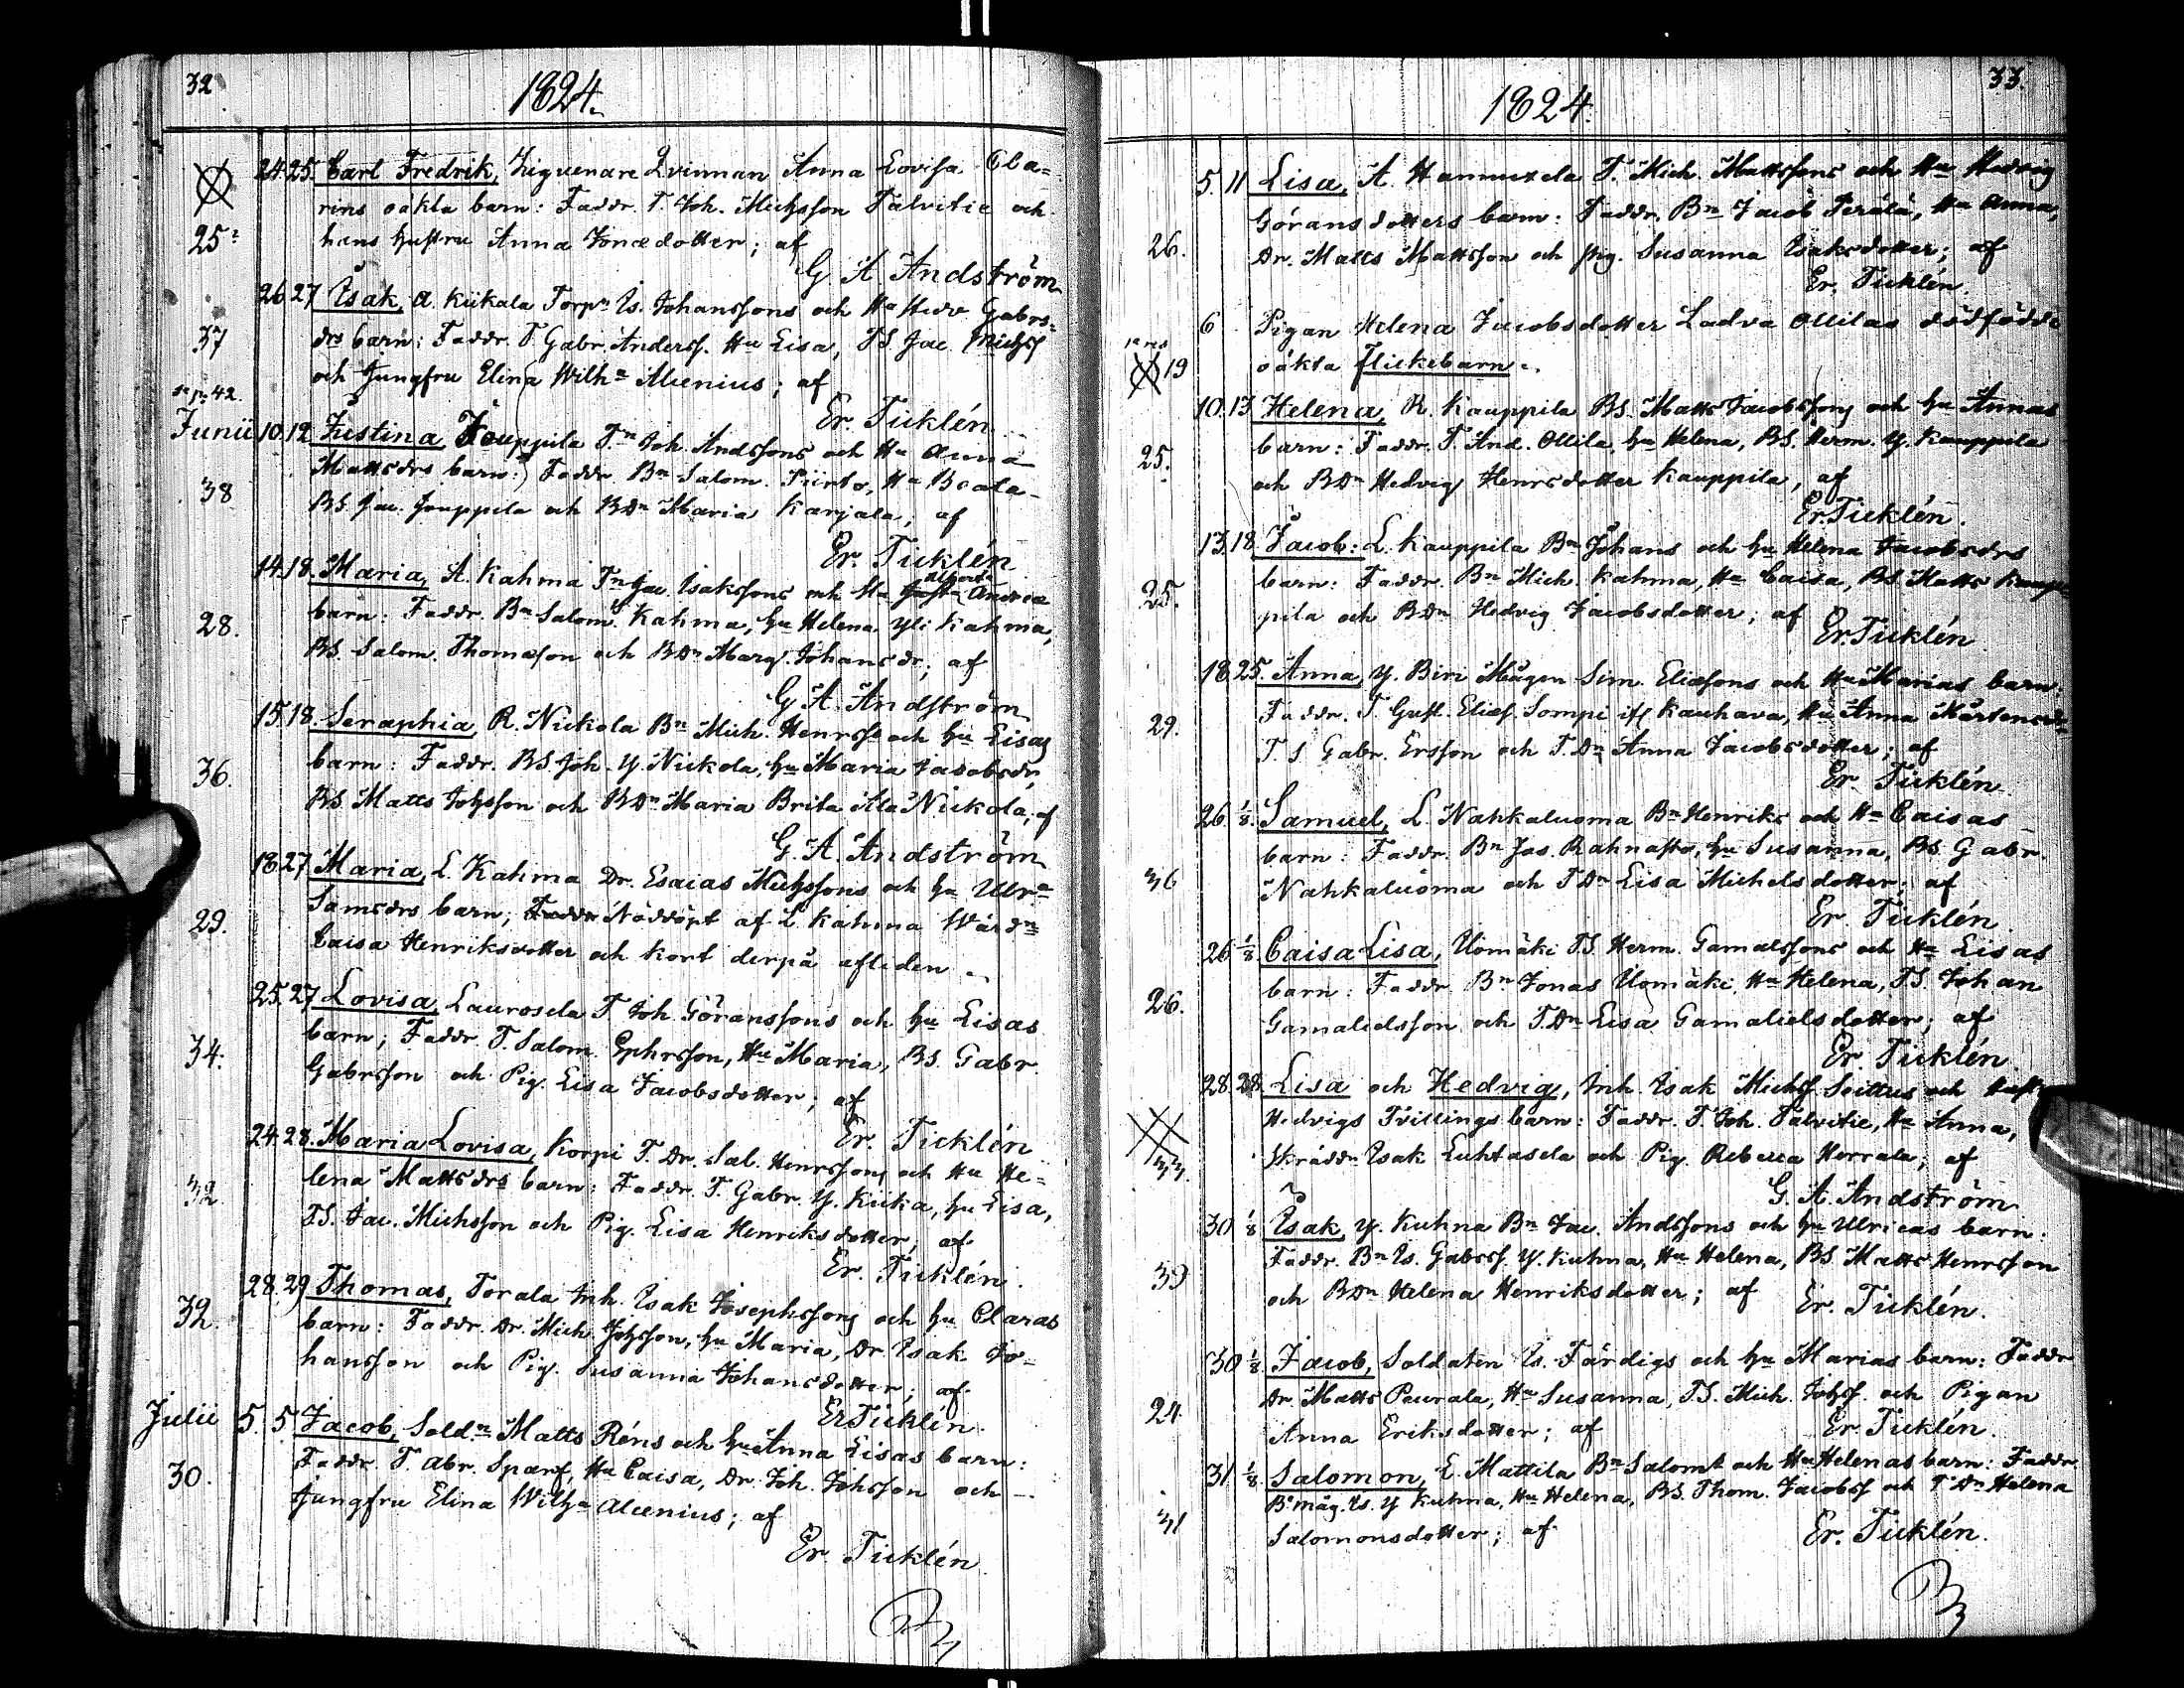 32
1824.
24. 25. Carl Fredrik, Ziguenare Qvinnan Anna Lovisa Cla=
rins oäkta barn: Faddr. T. Joh. Michsson Talvitie och
25. hans hustru Anna Jonædotter; af
G A Andström
26. 27 Isak, A. Kiikala Torpn Is. Johanssons och Hu Hedv. Gabrs=
37 drs barn: Faddr. T. Gabr. Anderss. Hu Lisa, TS. Jac. Michss
och Jungfru Elina Wilha Alcenius; af
Er. Ticklén
Junii 10. 12. Justina Jouppila Tn Joh. Andssons och Hu Anna
Mattsdrs barn: Faddr. Bn Salom. Piirto, Hu Beata
38. BS. Jac. Jouppila och BDr Maria Karjala; af
Er. Ticklén
14. 18. Maria, A. Kahma Tn Jac. Isakssons och Hu Andrea
28. barn: Faddr. Bn Salom. Kahma, hu Helena Yli Kahma,
BS. Salom. Thomæson och BDr Marg. Johansdr; af
G. A. Andström
15. 18. Seraphia, R. Nickola Bn Mich. Henrss och hu Lisas
36. barn: Faddr. BS Joh. Y. Nickola, hu Maria Jacobsdr
BS. Matts Johsson och BDr Maria Brita Ala Nickola; af
G. A. Andström
18. 27 Maria, L. Kahma Dr. Esaias Michssons och hu Ulra
29. Samsdrs barn; Nöddöpt af L. Kahma Wärdn
Caisa Henriksdotter och kort derpå afleden
25. 27 Lovisa, Laurosela T. Joh. Göranssons och hu Lisas
34. barn; Faddr. T. Salom. Ephrsson, Hu Maria, BS. Gabr.
Gabrsson och Pig. Lisa Jacobsdotter; af
Er. Ticklén
24. 28. Maria Lovisa, Korpi T. Dr. Sal. Henrssons och Hu He=
32 lena Mattsdrs barn: Faddr. T. Gabr. Y. Kiika, hu Lisa,
TS. Jac. Michsson och Pig. Lisa Henriksdotter; af
Er. Ticklén.
28. 29 Thomas, Torala Inh. Isak Josephssons och hu Claras
32. barn: Faddr. Dr. Mich. Johsson, hu Maria, Dr. Isak Jo=
hansson och Pig. Susanna Johansdotter; af
Er Ticklén
Julii 5. 5 Jacob, Soldn Matts Réns och hu Anna Lisas barn:
30. Faddr. T. Abr. Sparf, Hu Caisa, Dr. Joh. Johsson och
Jungfru Elina Wilha Alcenius; af
Er. Ticklén
33.
1824.
5. 11 Lisa, A. Hannuxela T. Mich. Mattssons och Hu Hedvig
26. Göransdotters barn: Faddr. Bn Jacob Perälä, Hu Anna,
Dr. Matts Mattsson och Pig. Susanna Isaksdotter; af
Er. Ticklén
6 Pigan Helena Jacobsdotter Ladva Ollilas dödfödde
19 oäkta flickebarn.
10. 13 Helena, R. Kauppila BS. Matts Jacobssons och hu Annas
25. barn: Faddr. T. And. Ollila, hu Helena, BS. Herm. Y. Kauppila
och BDr Hedvig Henrsdotter Kauppila, af
Er. Ticklén.
13. 18. Jacob: L. Kauppila Bn Johans och hu Helena Jacobsdrs
25. barn: Faddr. Bn Mich. Kahma, Hu Caisa, BS. Matts Kaup=
pila och BDr Hedvig Jacobsdotter; af
Er. Ticklén
18. 25. Anna, Y. Biri Mågen Sim. Eliæsons och Hu Marias barn:
29. Faddr. T. Gust. Eliæs. Sompi ifr Kauhava, Hu Anna Mårtensdr
T. S. Gabr. Ersson och T. Dr Anna Jacobsdotter; af
Er. Ticklén
26. 1/8. Samuel, L. Nahkaluoma Bn Henriks och Hu Caisas
36 barn: Faddr. Bn Jos. Rahnasto, hu Susanna, BS. Gabr.
Nahkaluoma och TDr Lisa Michelsdotter; af
Er. Ticklén.
26 1/8 Caisa Lisa, Uomäki TS. Herm. Gamalssons och Hu Lisas
26. barn: Faddr. Bn Jonas Uomäki, Hu Helena, TS. Johan
Gamalielsson och T. Dr Lisa Gamalielsdotter; af
Er Ticklén
28. 28. Lisa och Hedvig, Inh. Isak Michss Soittus och Hustr
Hedvigs Tvillingsbarn: Faddr. T. Joh. Talvitie, Hu Anna,
33. Skräddn Isak Luhtasela och Pig. Rebecca Herrala; af
G. A. Andström
30 1/8 Isak, Y. Kuhna Bn Jac. Andssons och hu Ulricas barn:
39 Faddr. Bn Is. Gabrss. Y. Kuhna, Hu Helena, BS. Matts Henrsson
och BDr Helena Henriksdotter; af Er. Ticklén.
30 1/8. Jacob, Soldaten Is. Färdigs och hu Marias barn: Faddr
24. Dr. Matts Peurala, Hu Susanna, TS. Mich. Johss. och Pigan
Anna Eriksdotter; af Er. Ticklén.
31. 1/8. Salomon, L. Mattila Bn Salomts och Hu Helenas barn: Faddr
Bmåg. Is. Y Kuhna, Hu Helena, BS. Thom. Jacobss och T Dr Helena
31 Salomonsdotter; af Er. Ticklén.